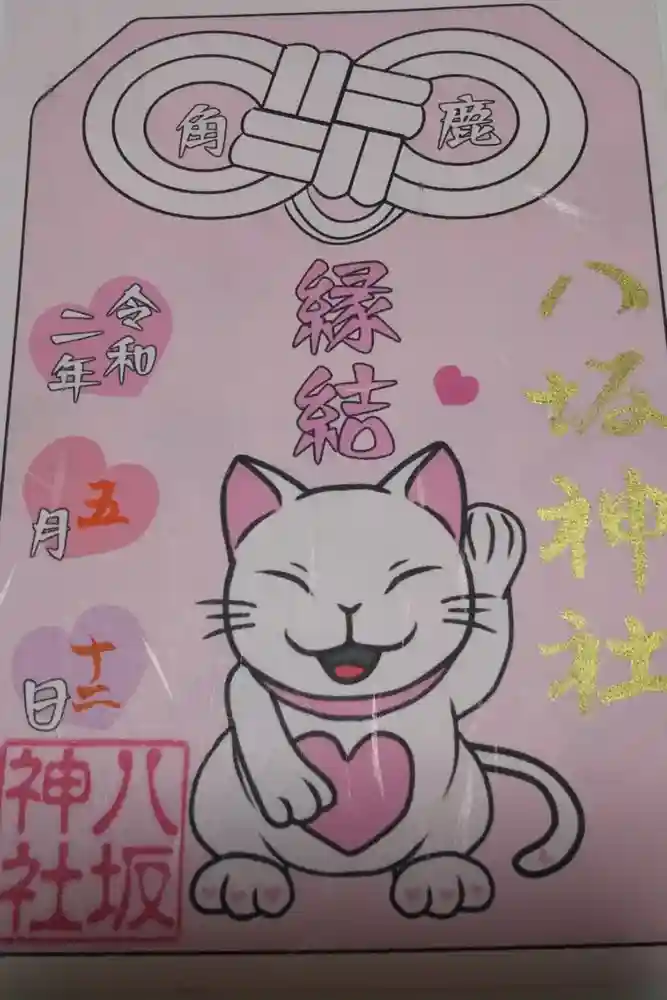 鹿角
八坂神社
縁結
令和
二年
五月
十二日
八坂
神社